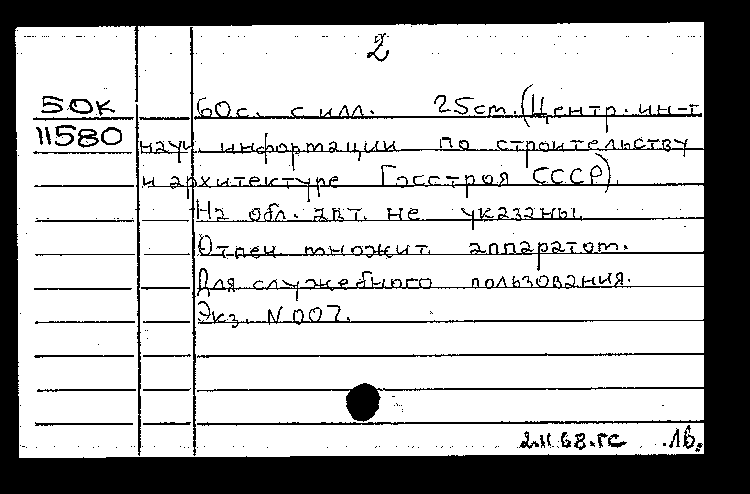 2
50К 60с. с илл. 25см. (Центр. ин-т
11580 науч. информации по строительству
и архитектуре Госстроя СССР).
На обл. авт. не указаны.
Отпеч. множит. аппаратом.
Для служебного пользования.
Экз. N 007.
2.11 68.гс .1б.